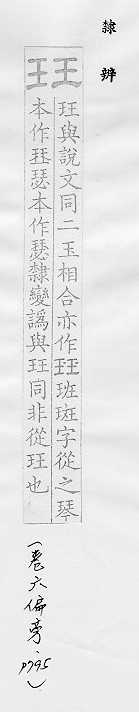 隸辨
玨
玨與說文同二玉相合亦作玨班斑字從之琴
本作珡瑟本作瑟隸變譌與玨同非從玨也
(卷六偏旁·p795)